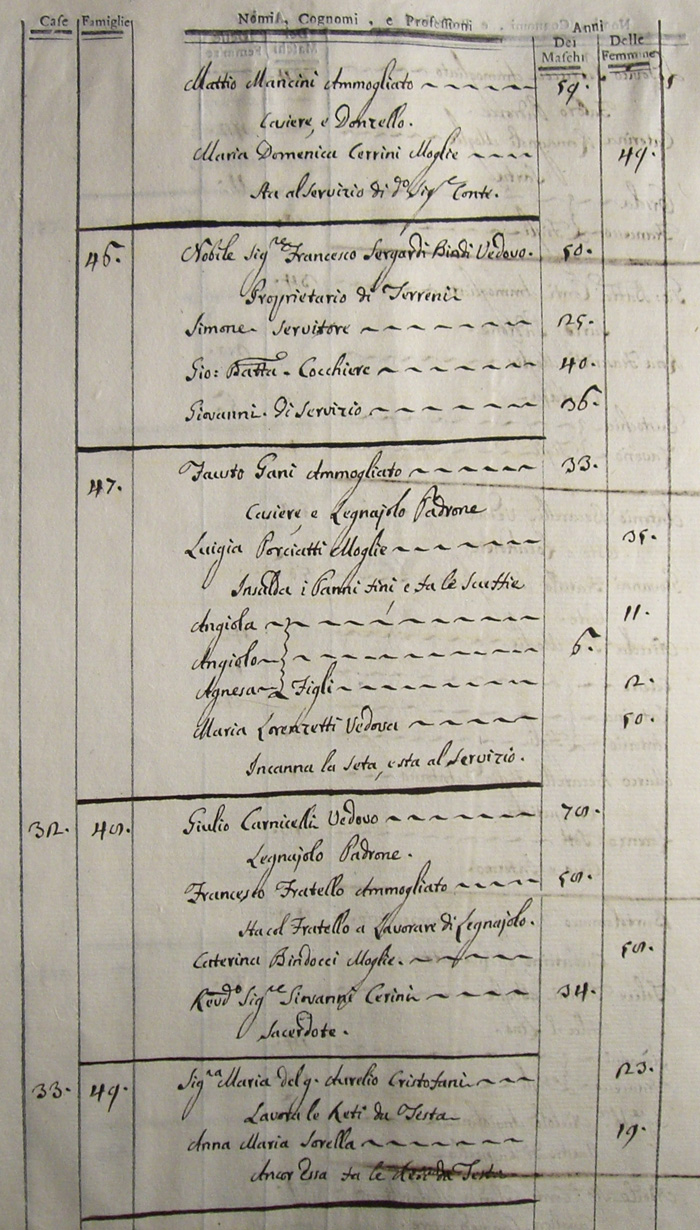 Case Famiglie Nomi, Cognomi, e Professioni Anni
Dei Maschi Delle Femmine
Mattio Mancini Ammogliato 59.
Casiere, e Donzello.
Maria Domenica Cerrini Moglie 49.
Sta al servizio di dº Sigre Conte.
46. Nobile Sigre Francesco Sergardi Bindi Vedovo. 50.
Proprietario di Terreni
Simone Servitore 25.
Gio: Batta. Cocchiere 40.
Giovanni. di Servizio 36.
47. Fausto Gani Ammogliato 33.
Casiere e Legnajolo Padrone
Luigia Porciatti Moglie 35.
Insalda i Panni fini e fa le
Angiola 11.
Angiolo 6.
Agnesa Figli 2.
Maria Lorenzetti Vedova 50.
Incanna la seta, e sta al servizio.
32. 48. Giulio Carnicelli Vedovo 78.
Legnajolo Padrone.
Francesco Fratello Ammogliato 58.
Sta col Fratello a Lavorare di Legnajolo.
Caterina Bindocci Moglie. 58.
Revdº Sigre Giovanni Cerini 34.
Sacerdote.
33. 49. Sigra Maria del q. Aurelio Cristofani 23.
Lavora le Reti da Testa
Anna Maria Sorella 19.
Ancor Essa fa le Reti da Testa